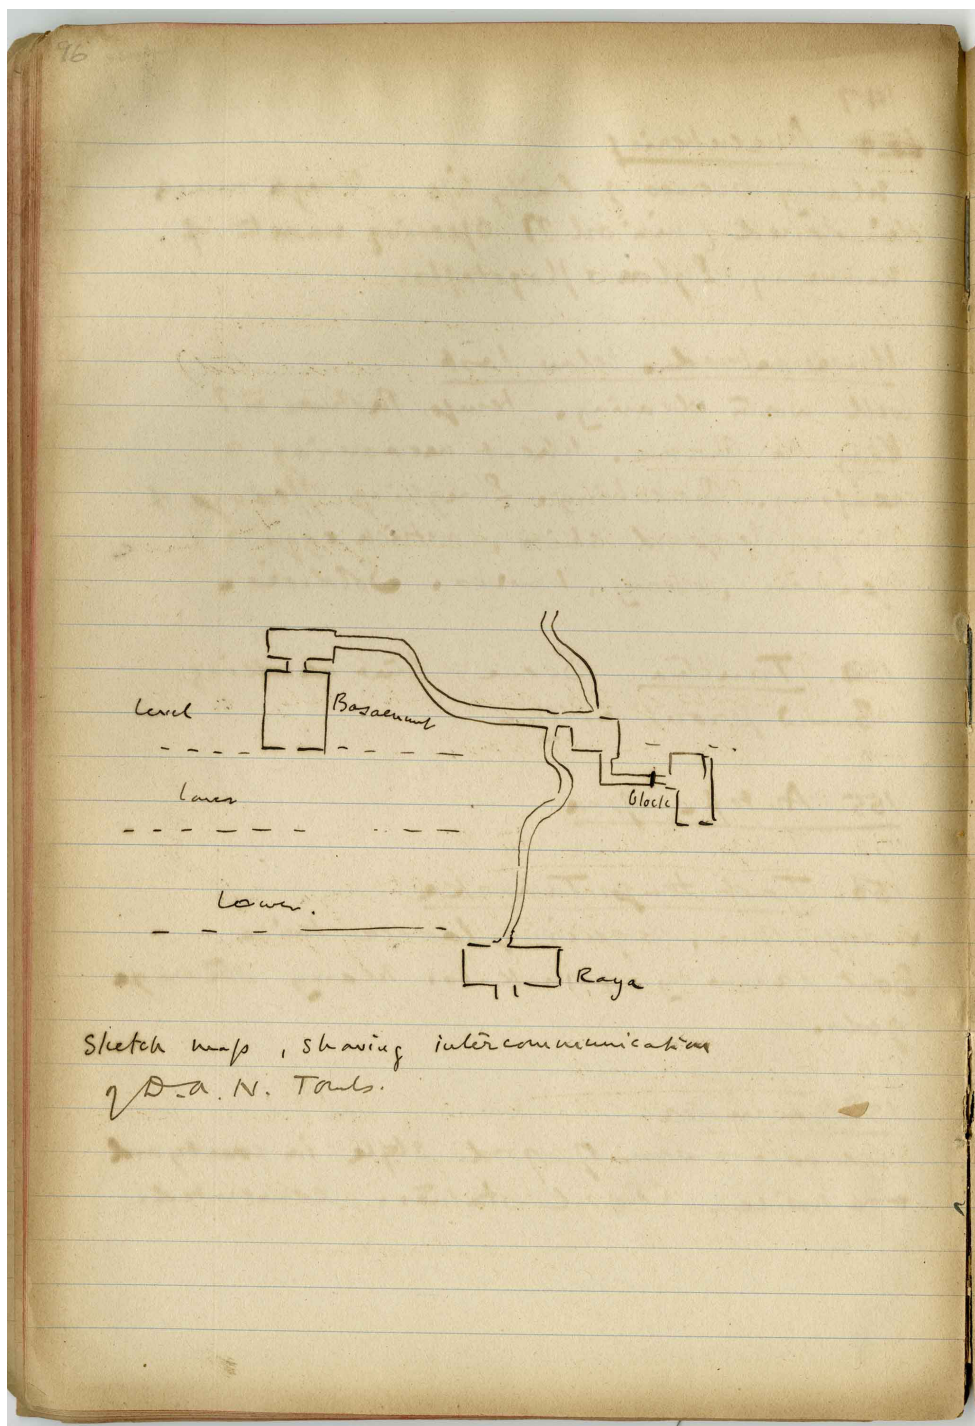 96
Level
Basement
Lower
Block
Lower.
Raya
Sketch map, showing intercommunication
of D.a.N. Tombs.